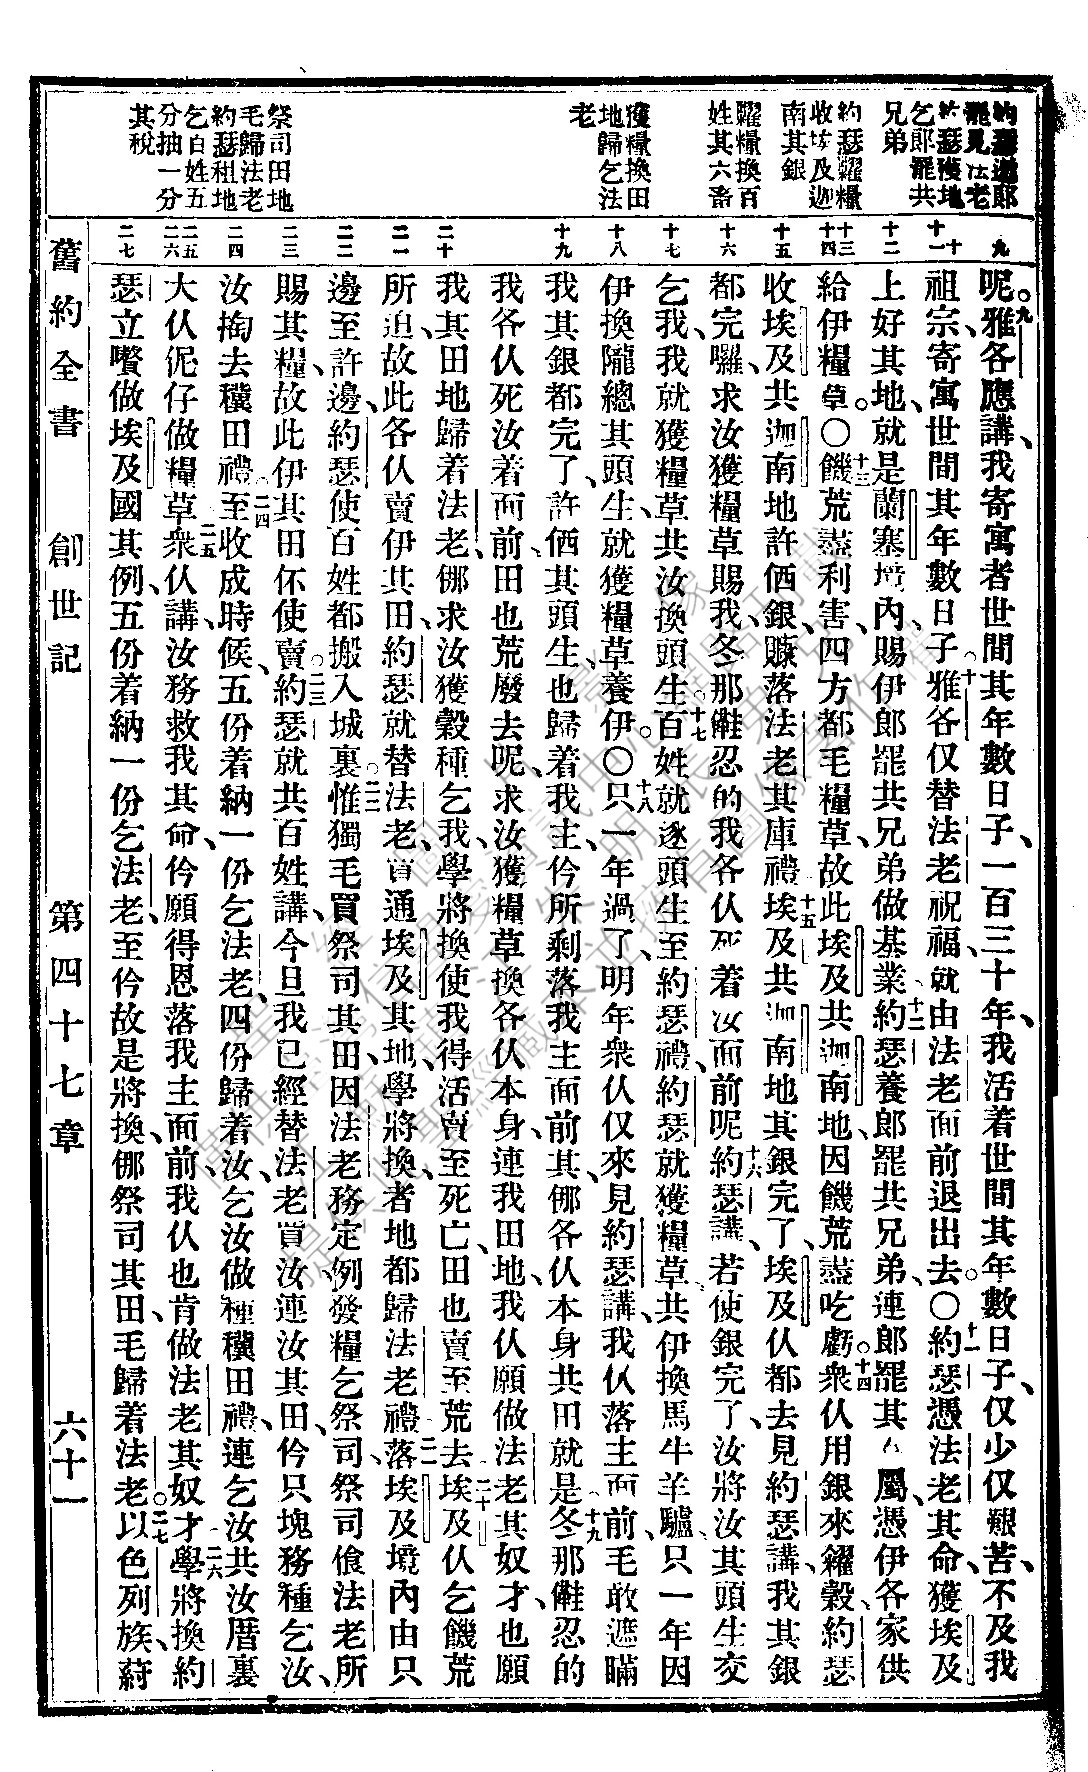 約瑟進郎
罷見法老
約瑟獲地
乞郎罷共
兄弟
約瑟糶糧
收埃及迦
南其銀
糶糧換百
姓其六畜
獲糧換田
地歸乞法
老
祭司田地
毛歸法老
約瑟租地
乞百姓五
分抽一分
其稅
九
十
十一
十二
十三
十四
十五
十六
十七
十八
十九
二十
二一
二二
二三
二四
二五
二六
二七
呢。九雅各應講、我寄寓者世間其年數日子、一百三十年、我活着世間其年數日子、仅少仅艱苦、不及我
祖宗、寄寓世間其年數日子。十雅各仅替法老祝福、就由法老面前退出去。〇十一約瑟憑法老其命、獲埃及
上好其地、就是蘭塞境內、賜伊郎罷共兄弟做基業、十二約瑟養郎罷共兄弟、連郎罷其 屬、憑伊各家供
給伊糧草。〇十三饑荒盡利害、四方都毛糧草、故此埃及共迦南地、因饑荒盡吃虧。十四衆仈用銀來糴穀、約瑟
收埃及共迦南地許価銀、賺落法老其庫禮、十五埃及共迦南地其銀完了、埃及仈都去見約瑟講、我其銀
都完囉、求汝獲糧草賜我、冬那﨡忍的我各仈死着汝面前呢、十六約瑟講、若使銀完了、汝將汝其頭生交
乞我、我就獲糧草共汝換頭生。十七百姓就逐頭生至約瑟禮、約瑟就獲糧草、共伊換馬牛羊驢、只一年因
伊換隴總其頭生、就獲糧草養伊。〇十八只一年過了、明年衆仈仅來見約瑟講、我仈落主面前、毛敢遮瞞、
我其銀都完了、許価其頭生、也歸着我主、仱所剩落我主面前其、㑚各仈本身共田就是、十九冬那﨡忍的
我各仈死汝着面前、田也荒廢去呢、求汝獲糧草換各仈本身、連我田地、我仈願做法老其奴才、也願
我其田地歸着法老、㑚求汝獲穀種乞我、學將換使我得活、賣至死亡、田也賣至荒去、二十埃及仈乞饑荒
所迫、故此各仈賣伊其田、約瑟就替法老、買通埃及其地、學將換者地都歸法老禮、二一落埃及境內由只
邊至許邊、約瑟使百姓都搬入城裏。二二惟獨毛買祭司其田、因法老務定例、發糧乞祭司、祭司飧法老所
賜其糧、故此伊其田伓使賣。二三約瑟就共百姓講、今旦我已經替法老買汝連汝其田、仱只塊務種乞汝、
汝掏去穰田禮、二四至收成時候、五份着納一份乞法老、四份歸着汝、乞汝做種穰田禮、連乞汝共汝厝裏
大仈伲仔做糧草、二五衆仈講、汝務救我其命、仱願得恩落我主面前、我仈也肯做法老其奴才、二六學將換約
瑟立嚽做埃及國其例、五份着納一份乞法老、至仱故是將換、㑚祭司其田、毛歸着法老。二七以色列族、蒔
舊約全書　創世記　第四十七章　六十一